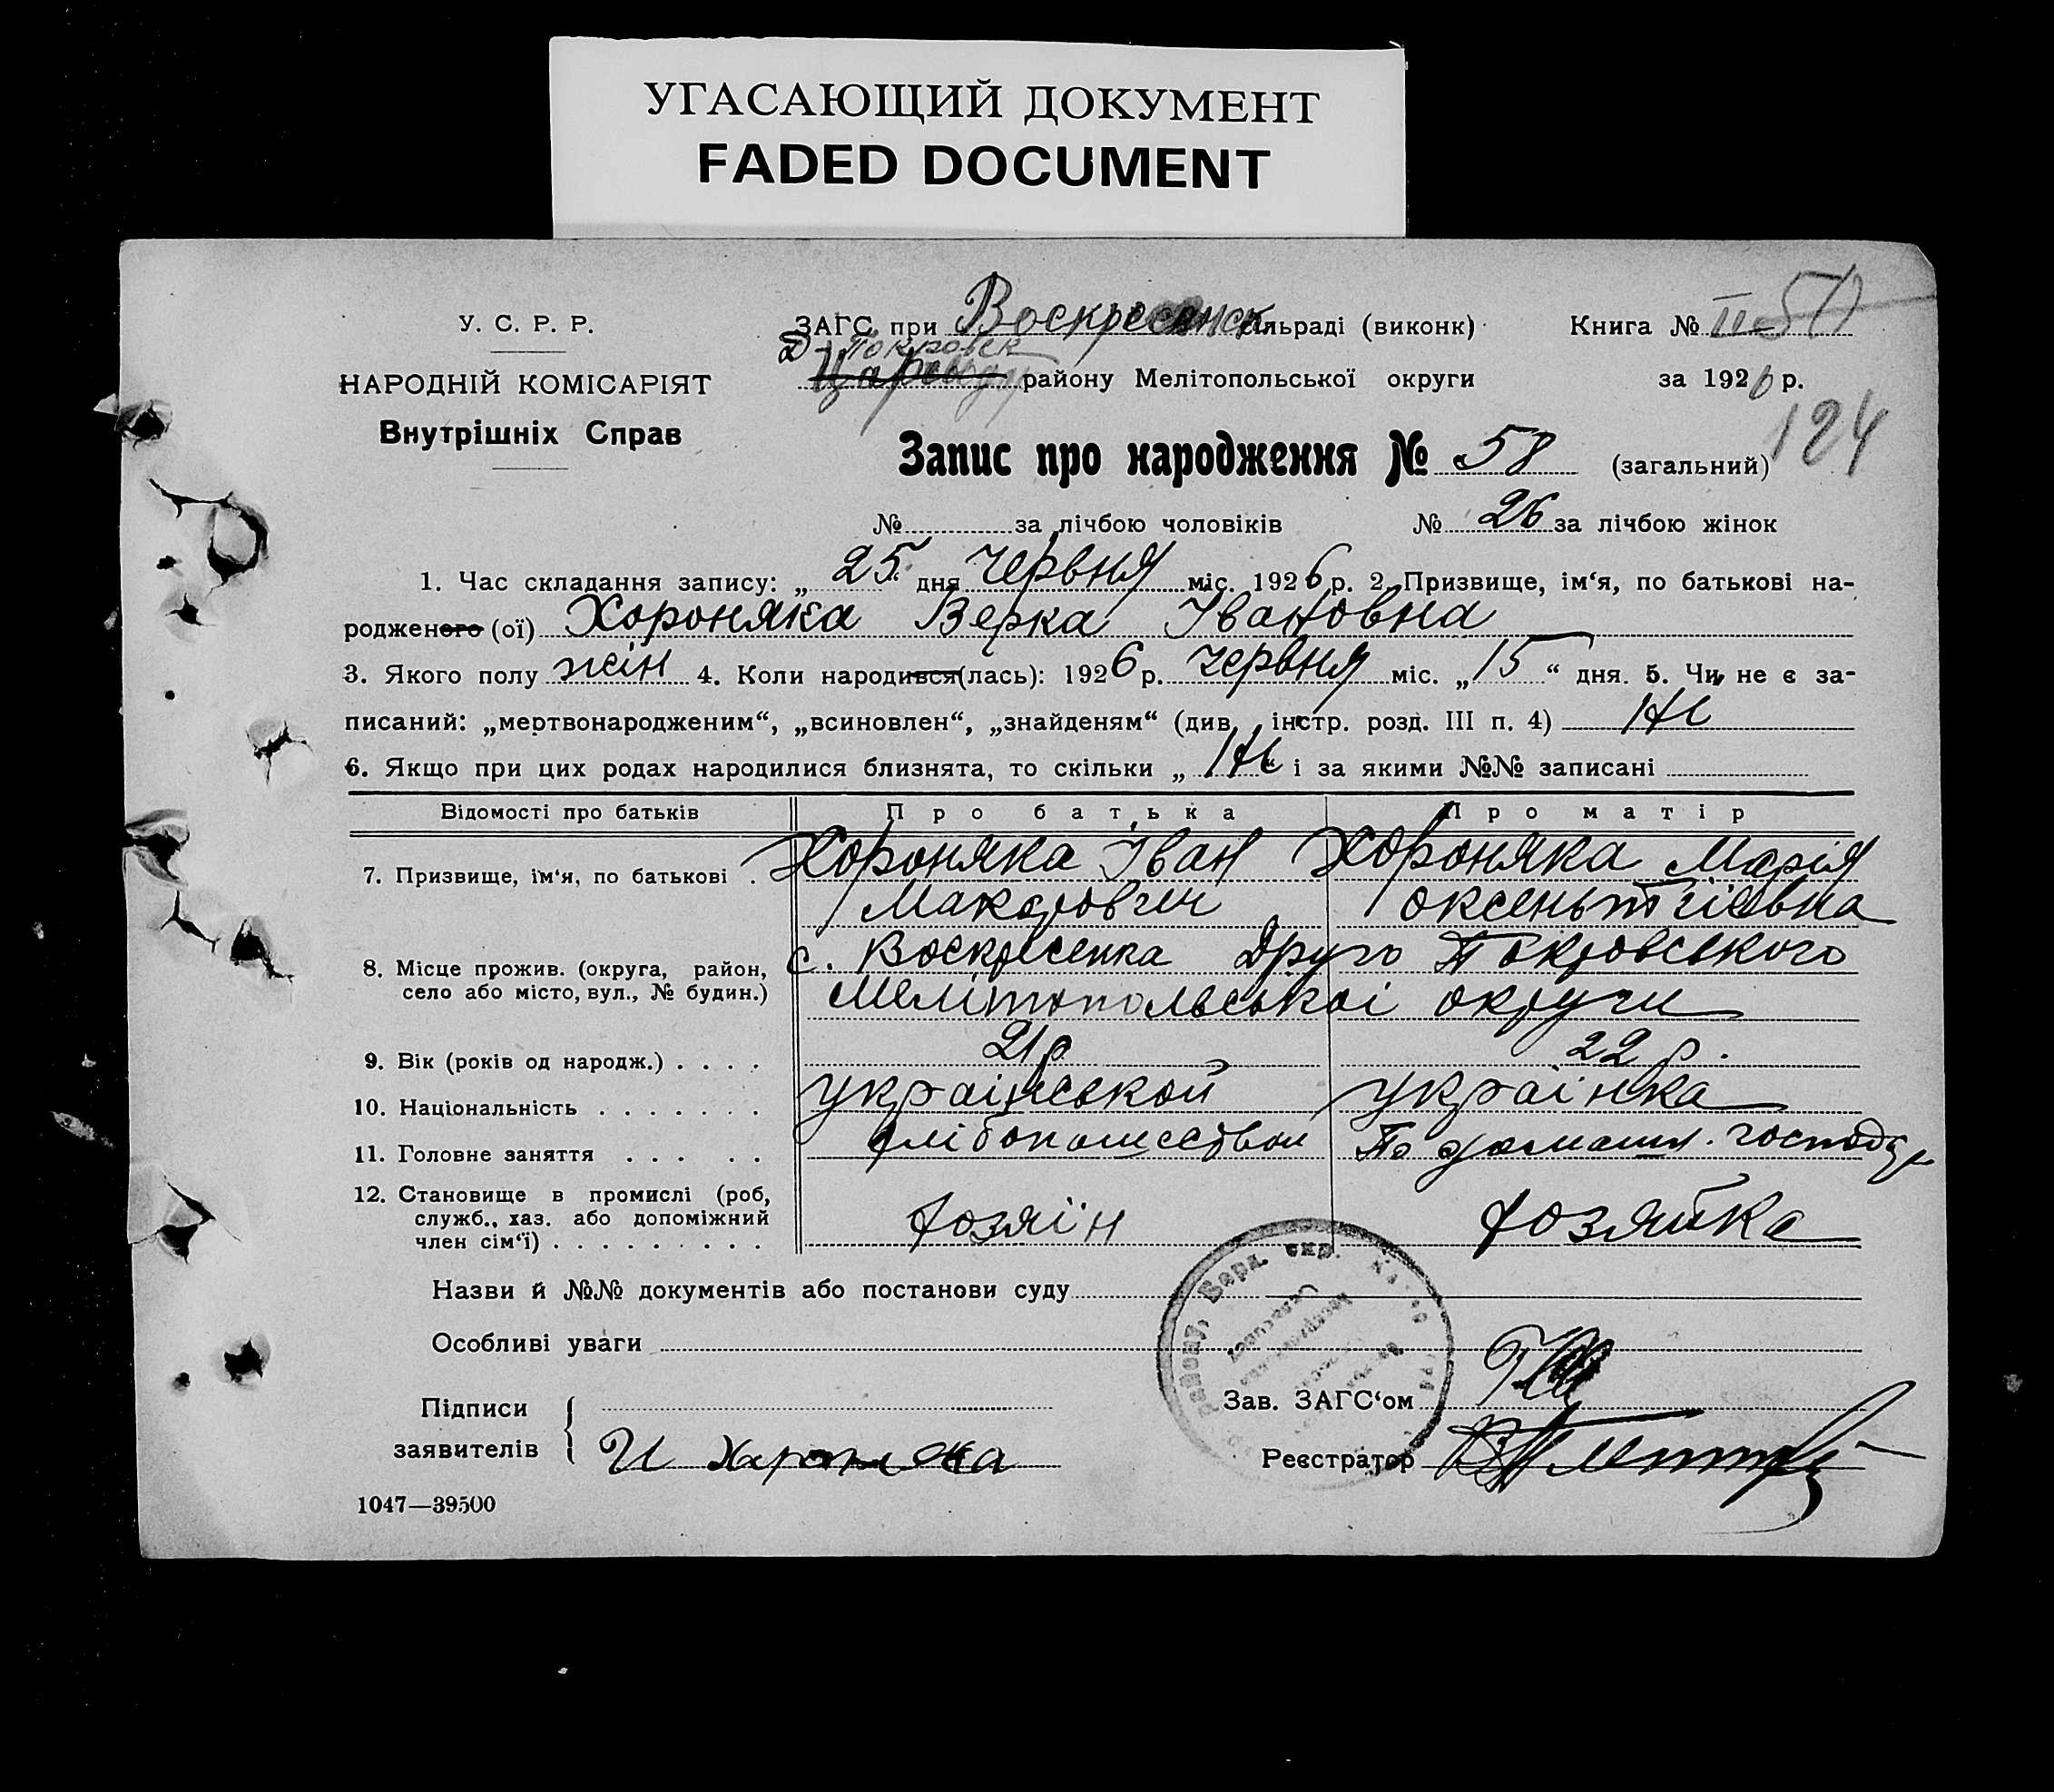 УГАСАЮЩИЙ ДОКУМЕНТ
FADED DOCUMENT
У. С. Р. Р.
НАРОДНІЙ КОМІСАРІЯТ
Внутрішніх Справ
ЗАГС при Воскресенск сільраді (виконк)
Книга № II-
Д-Покровск
району Мелітопольської округи
за 1926 р.
124
Запис про народження № 58 (загальний)
№ за лічбою чоловіків № 26 за лічбою жінок
1. Час складання запису: „25" дня червня міс. 1926 р. 2. Призвище, ім‘я, по батькові на-
родженого (ої) Хороняка Верка Івановна
3. Якого полу жін 4. Коли народився(лась): 1926 р. червня міс. „15“ дня. 5. Чи не є за-
писаний: „мертвонародженим“, „всиновлен“, „знайденям“ (див. інстр. розд. III п. 4) Ні
6. Якщо при цих родах народилися близнята, то скільки „Ні“ і за якими №№ записані
Відомості про батьків Про батька Про матір
7. Призвище, ім‘я, по батькові . Хороняка Іван Хороняка Марія
Макарович Оксеньтіївна
8. Місце прожив. (округа, район, село або місто, вул., № будин.) с. Воскресенка Друго Покровського
Мелітопольської округи
9. Вік (років од народж.) . . . . 21 р 22 р.
10. Національність . . . . . . . українськой українка
11. Головне заняття . . . . . хлібопашеством По домашн. господ
12. Становище в промислі (роб, служб., хаз. або допоміжний член сім‘ї) . . . . . . . . . хозяїн хозяйка
Назви й №№ документів або постанови суду
Особливі уваги
Підписи
заявителів
И Хороняка
Зав. ЗАГС‘ом
Реєстратор
1047—39500